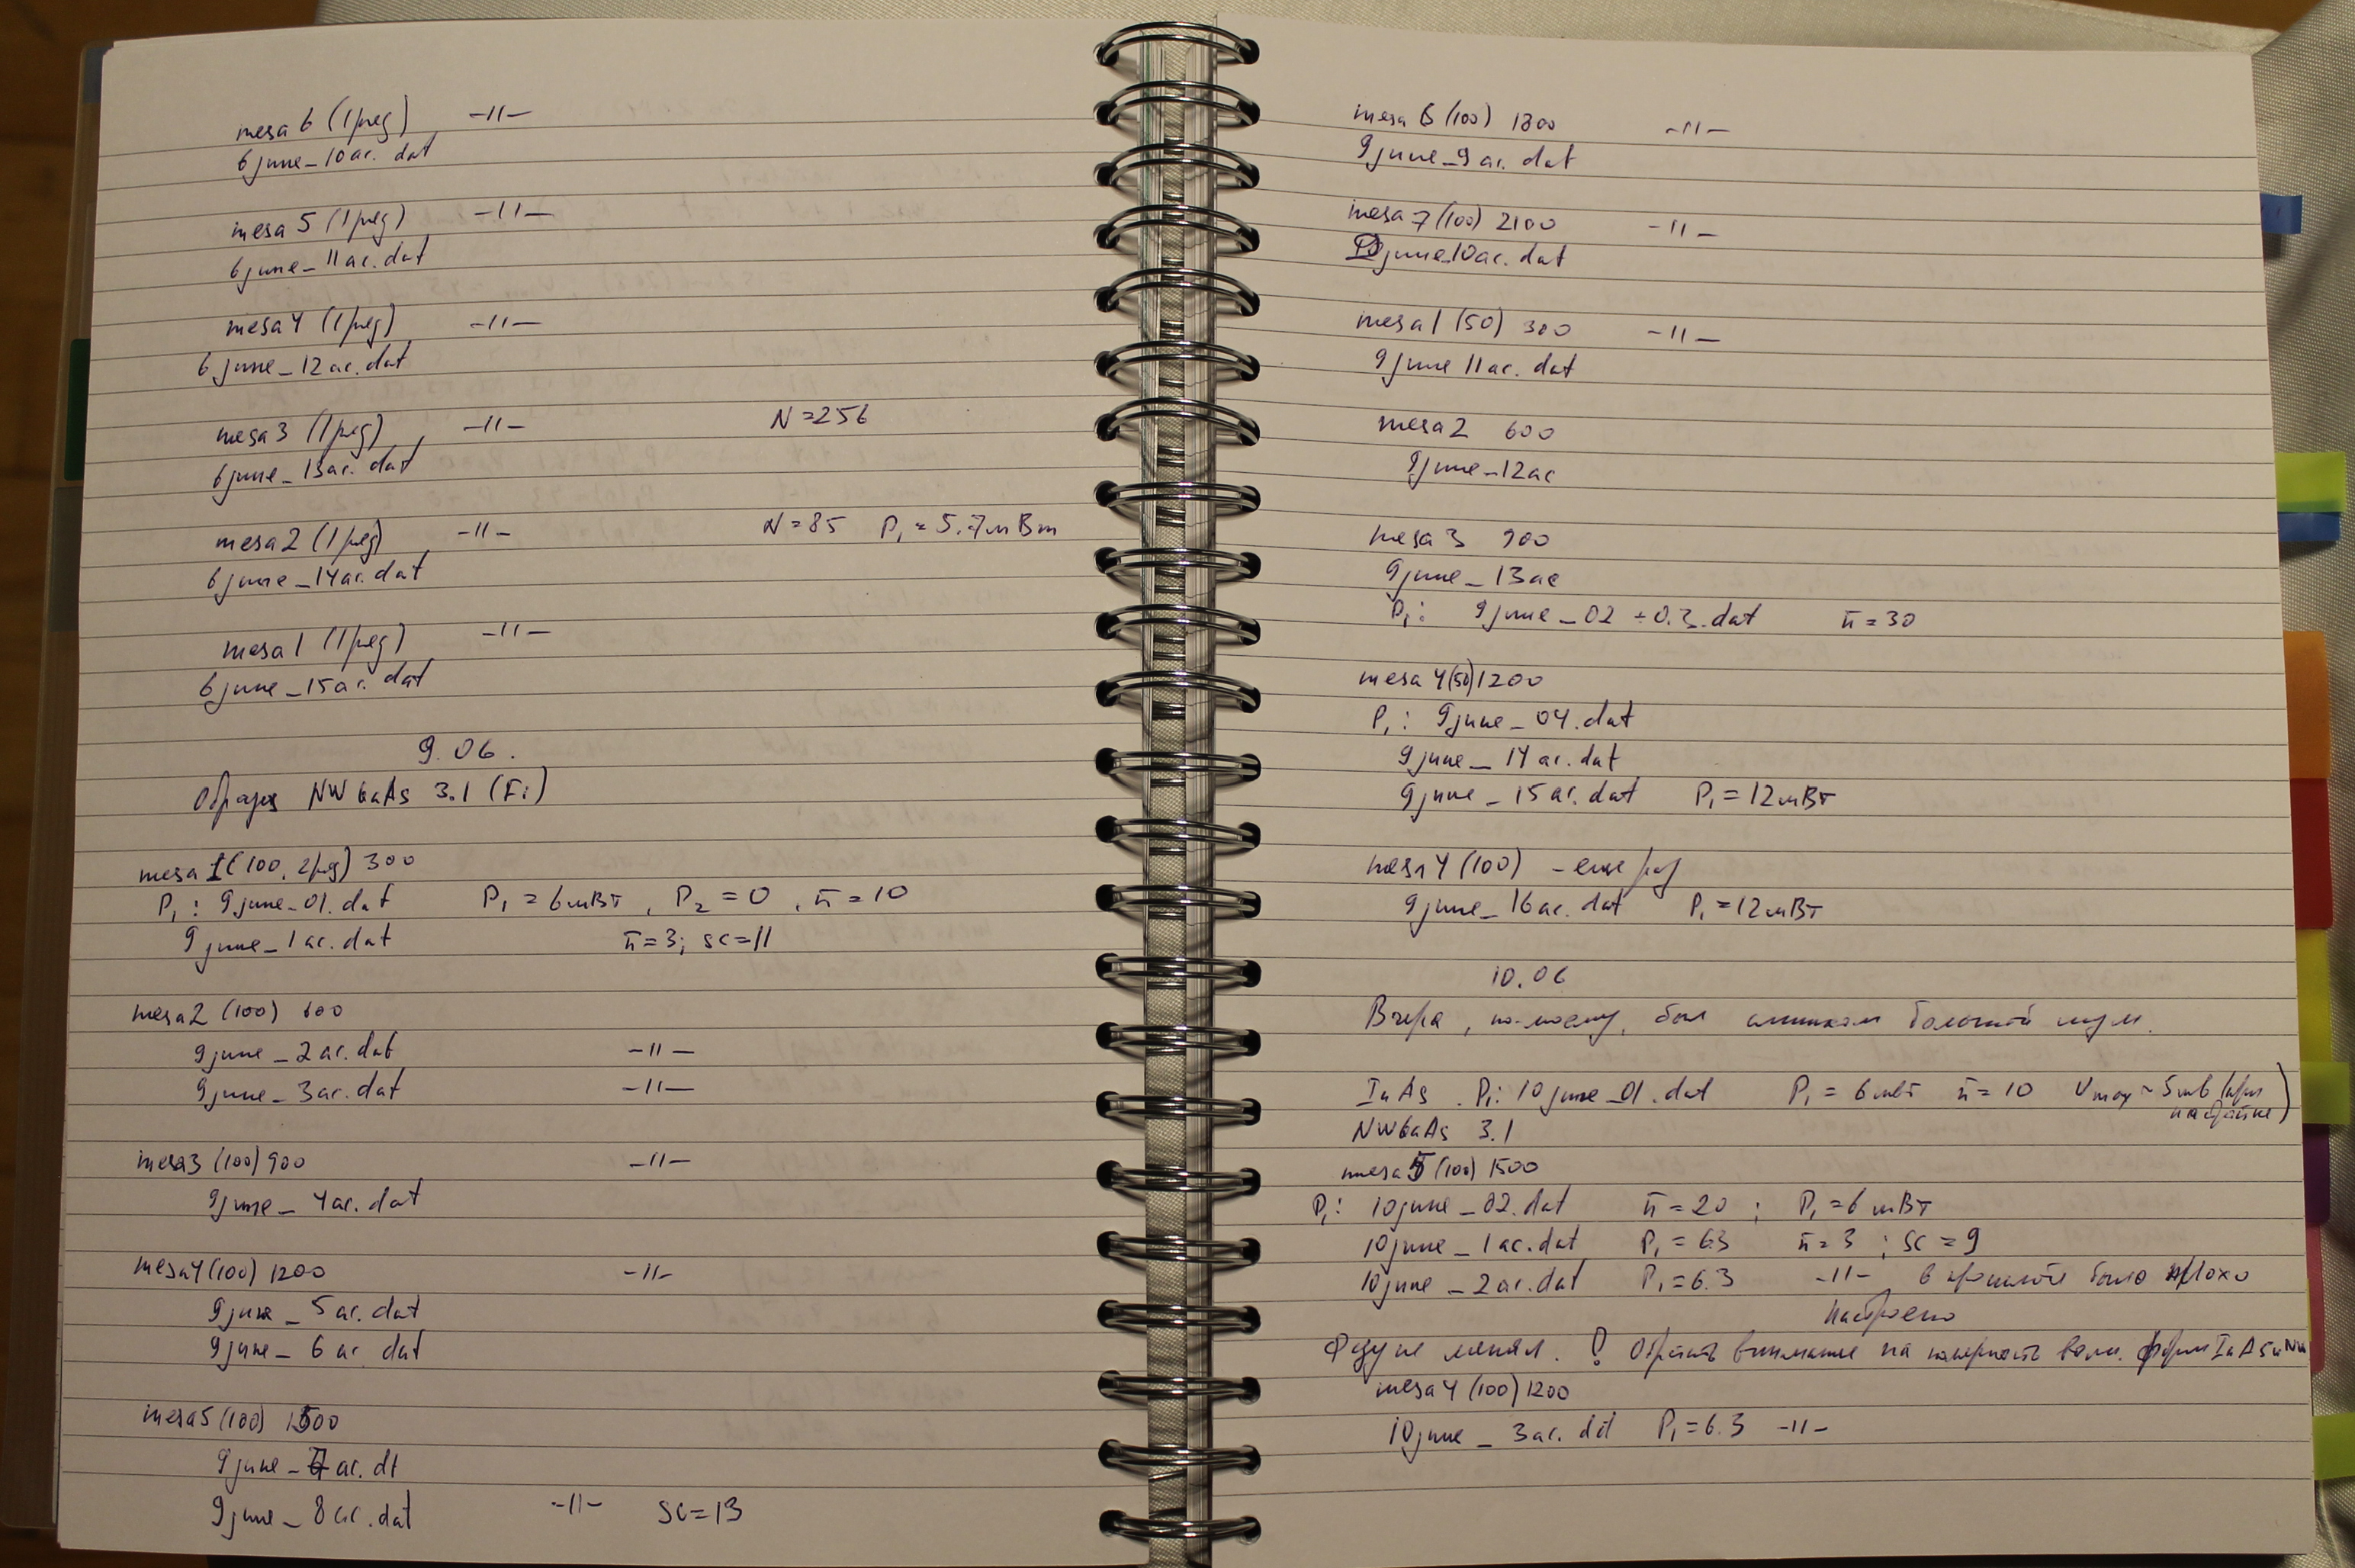 mesa 6 (1 ряд) -11-
6 june_10ac. dat
mesa 5 (1 ряд) -11-
6 june_11ac.dat
mesa 4 (1 ряд) -11-
6 june_12ac.dat
mesa 3 (1 ряд) -11- N=256
6 june_13ac. dat
mesa 2 (1 ряд) -11- N=85 P₁=5.7мВт
6 june_14ac.dat
mesa 1 (1 ряд) -11-
6 june_15ac. dat
9.06.
Образец NWGaAs 3.1 (Fi)
mesa 1 (100, 2 ряд) 300
P₁: 9june_01.dat P₁=6мВт, P₂=0, n̄=10
9june_1ac.dat n̄=3; sc=11
mesa2 (100) 600
9june_2ac.dat -11-
9june_3ac.dat -11-
mesa3 (100) 900 -11-
9june_4ac.dat
mesa4 (100) 1200 -11-
9june_5ac.dat
9june_6ac.dat
mesa5 (100) 1500
9june_7ac.dt
9june_8ac.dat -11- sc=13
mesa 6 (100) 1800 -11-
9june_9ac. dat
mesa 7 (100) 2100 -11-
june_10ac.dat
mesa1 (50) 300 -11-
9june 11ac. dat
mesa2 600
9june_12ac
mesa 3 900
9june_13ac
P₁: 9june_02 ÷0.3.dat n̄=30
mesa 4(50)1200
P₁: 9june_04.dat
9june_14ac.dat
9june_15ac.dat P₁=12мВт
mesa 4 (100) - еще раз
9june_16ac.dat P₁=12мВт
10.06
Вчера, по-моему, был слишком большой шум.
InAs. P₁: 10june_01.dat P₁=6мВт n̄=10 Vmax~5mв (при
настройке)
NWGaAs 3.1
mesa 5 (100) 1500
P₁: 10june_02.dat n̄=20; P₁=6мВт
10june_1ac.dat P₁=6.3 n̄=3; sc=9
10june_2ac.dat P₁=6.3 -11- в прошлой было плохо
настроено
Фазу не менял. ! Обратить внимание на полярность волн. форм InAs и NW
mesa 4 (100) 1200
10june_3ac. dat P₁=6.3 -11-